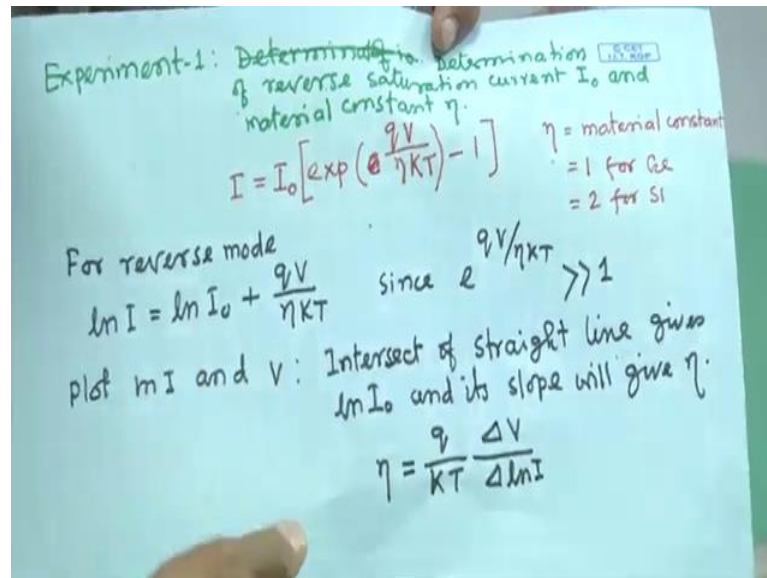 Experiment-1: Determination Determination
of reverse saturation current I₀ and
material constant η.
I = I₀[exp(qV/ηKT) - 1]
η = material constant
= 1 for Ge
= 2 for Si
For reverse mode
ln I = ln I₀ + qV/ηKT since e^qV/ηKT >> 1
plot ln I and V: Intersect of straight line gives
ln I₀ and its slope will give η.
η = q/KT ΔV/ΔlnI